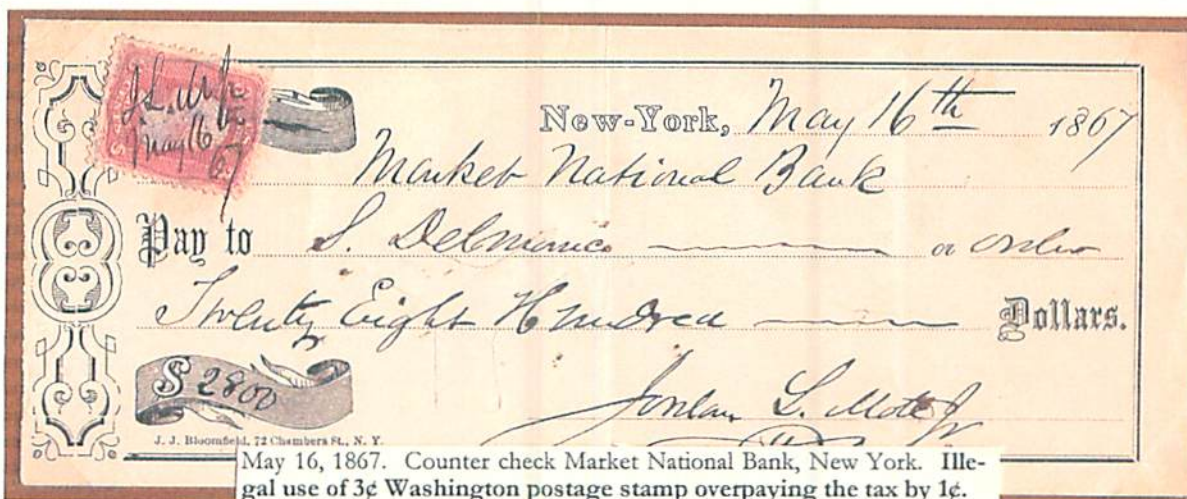 J. L. M. Jr
May 16
67
New-York, May 16th 1867
Market National Bank
Pay to S. Delmonico or order
Twenty Eight Hundred Dollars.
$ 2800
Jordan L. Mott Jr
J. J. Bloomfield, 72 Chambers St., N. Y.
May 16, 1867. Counter check Market National Bank, New York. Ille-
gal use of 3¢ Washington postage stamp overpaying the tax by 1¢.